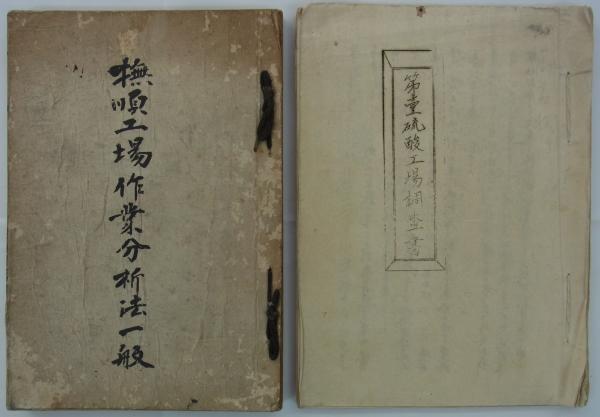 撫順工場作業分析法一般
第壹硫酸工場調査書